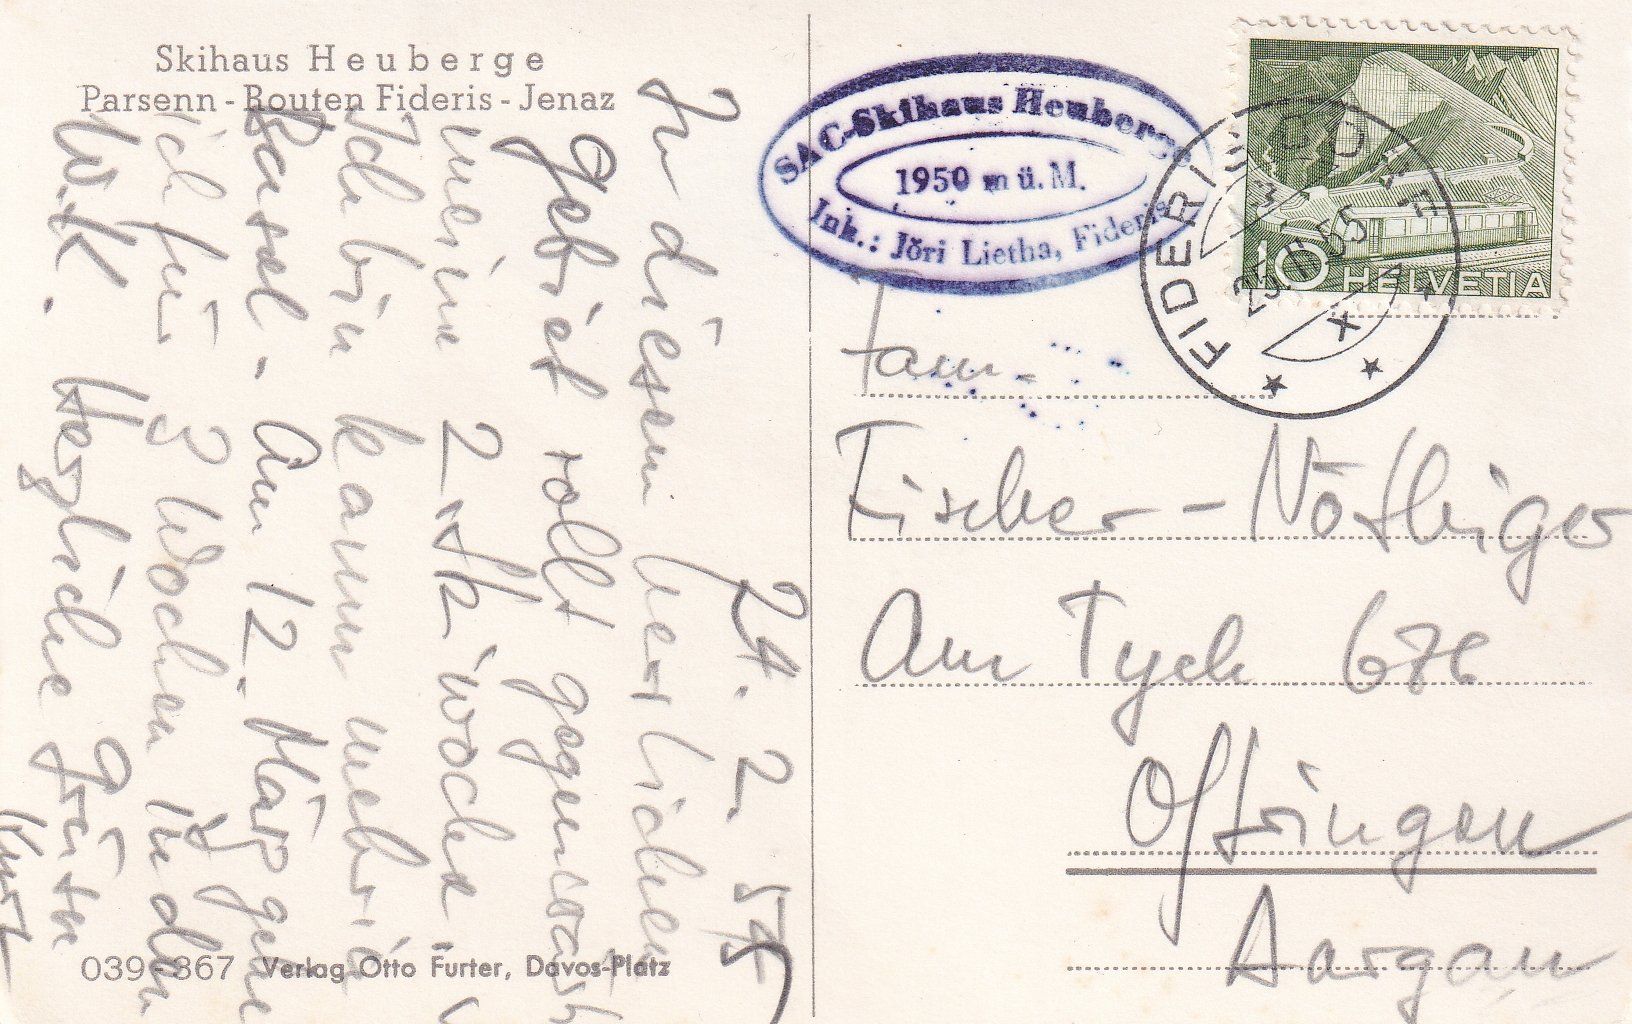 Skihaus Heuberge
Parsenn - Routen Fideris - Jenaz
24. 2. 55
In diesem herrlichen
Gebiet rollt gegenwärt
meine 2te Skiwoche
Ich bin kaum mehr in
Basel. Am 12. März gehe
ich für 3 Wochen in den
W.K. Herzliche Grüsse
Kurt
039-867 Verlag Otto Furter, Davos-Platz
SAC-Skihaus Heuberge
1950 m ü. M.
Inh.: Jöri Lietha, Fideris
FIDERIS
HELVETIA
10
Fam.
Fischer-Nöthiger
Am Tych 676
Oftringen
Aargau